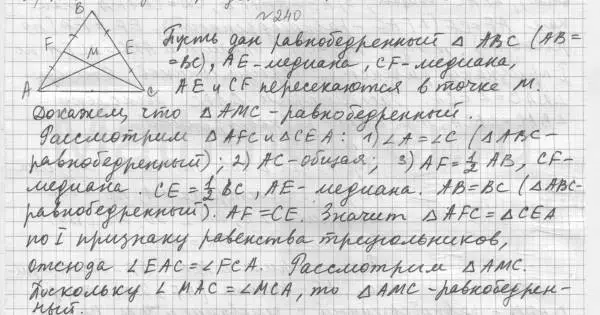 №240
B
F
M
E
A
C
Пусть дан равнобедренный △ ABC (AB=
=BC), AE-медиана, CF-медиана,
AE и CF пересекаются в точке M.
Докажем, что △AMC-равнобедренный.
Рассмотрим △AFC и △CEA: 1) ∠A=∠C (△ABC-
равнобедренный); 2) AC-общая; 3) AF=1/2 AB, CF-
медиана. CE=1/2 BC, AE-медиана. AB=BC (△ABC-
равнобедренный). AF=CE. Значит △AFC=△CEA
по I признаку равенства треугольников,
отсюда ∠EAC=∠FCA. Рассмотрим △AMC.
Поскольку ∠MAC=∠MCA, то △AMC-равнобедрен-
ный.